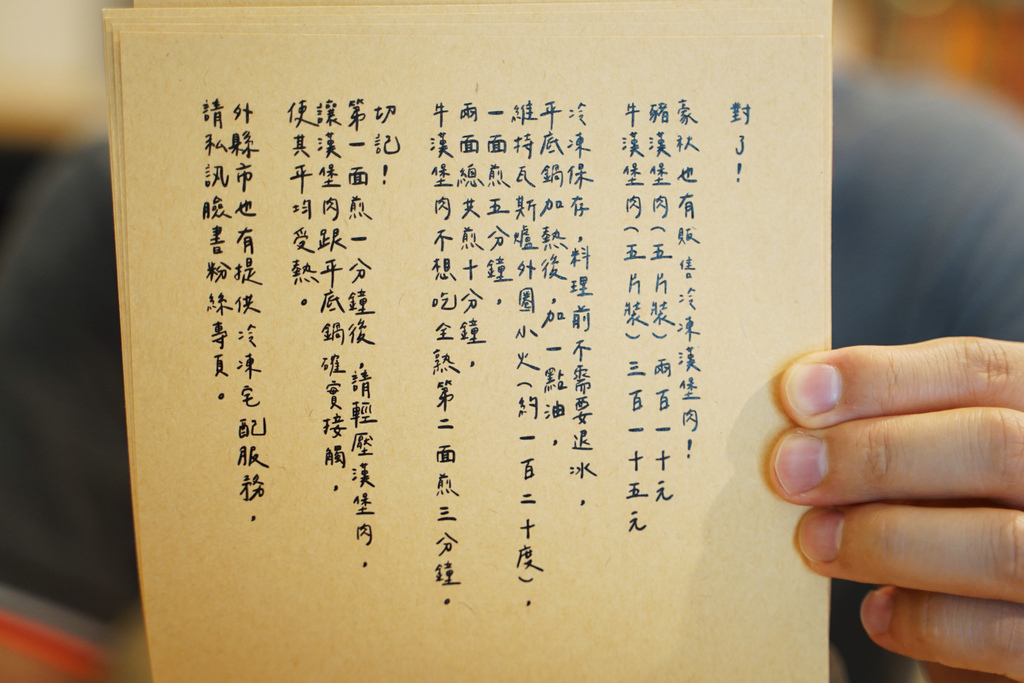 對了!
豪秋也有販售冷凍漢堡肉!
豬漢堡肉(五片裝)兩百一十元
牛漢堡肉(五片裝)三百一十五元
冷凍保存,料理前不需要退冰,
平底鍋加熱後,加一點油,
維持瓦斯爐外圈小火(約一百二十度),
一面煎五分鐘,
兩面總共煎十分鐘,
牛漢堡肉不想吃全熟第二面煎三分鐘。
切記!
第一面煎一分鐘後,請輕壓漢堡肉,
讓漢堡肉跟平底鍋確實接觸,
使其平均受熱。
外縣市也有提供冷凍宅配服務,
請私訊臉書粉絲專頁。